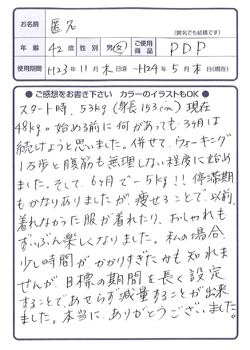 お名前 匿名
(匿名でも結構です)
年齢 42歳 性別 男・女 ご使用商品 PDP
使用期間 H23年11月末日頃〜H24年5月末日(現在)
●ご感想をお書き下さい カラーのイラストもOK●
スタート時、53kg(身長153cm)現在
48kg。始める前に何があっても3ヶ月は
続けようと思いました。併せてウォーキング
1万歩と腹筋も無理しない程度に始め
ました。そして、6ヶ月で−5kg!!停滞期
もかなりありましたが、痩せることで、以前
着れなかった服が着れたり、おしゃれも
ずいぶん楽しくなりました。私の場合、
少し時間がかかりすぎたかも知れま
せんが、目標の期間を長く設定
することであせらず減量することが出来
ました。本当に、ありがとうございました。